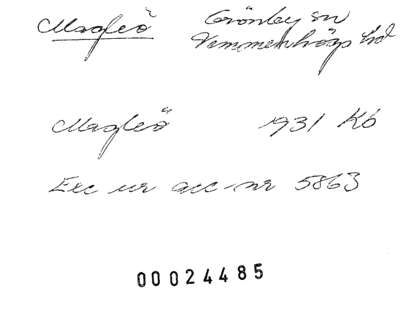 Magleö Grönby sn
Vemmenhögs hd
Magleö 1931 Kb
Exc ur acc-nr 5863
00024485